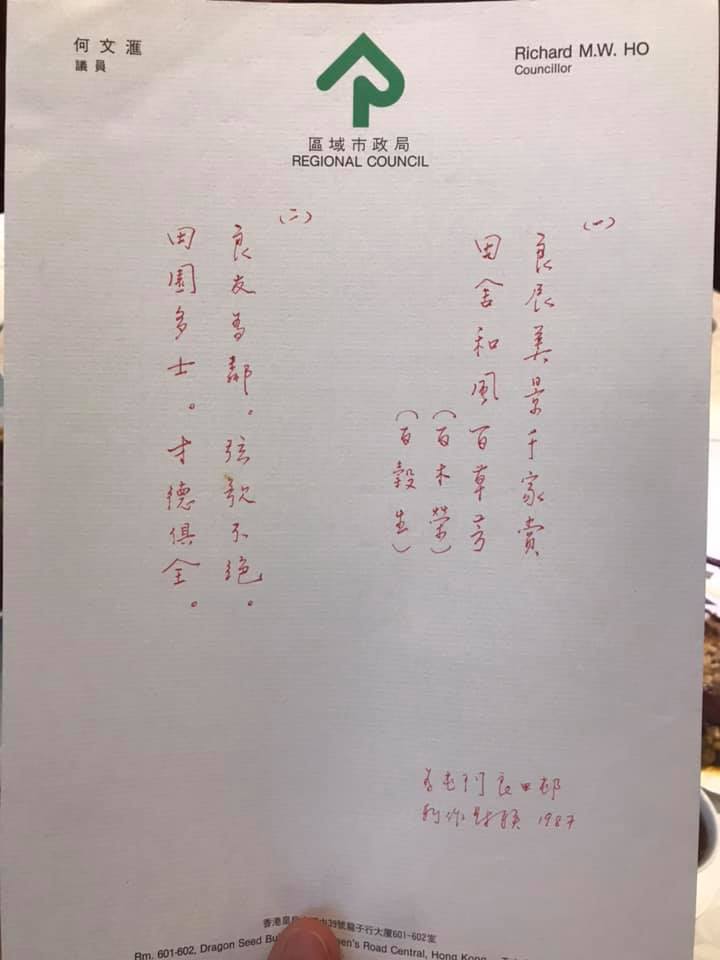 何文滙
議員
區域市政局
REGIONAL COUNCIL
Richard M.W. HO
Councillor
(一)
良辰美景千家賞
田舍和風百草芳
(百木榮)
(百穀生)
(二)
良友為鄰。弦歌不絕。
田園多士。才德俱全。
為屯門良田邨
1987
香港皇 中39號龍子行大廈601-602室
Rm. 601-602, Dragon Seed Road Central, Hong Kong